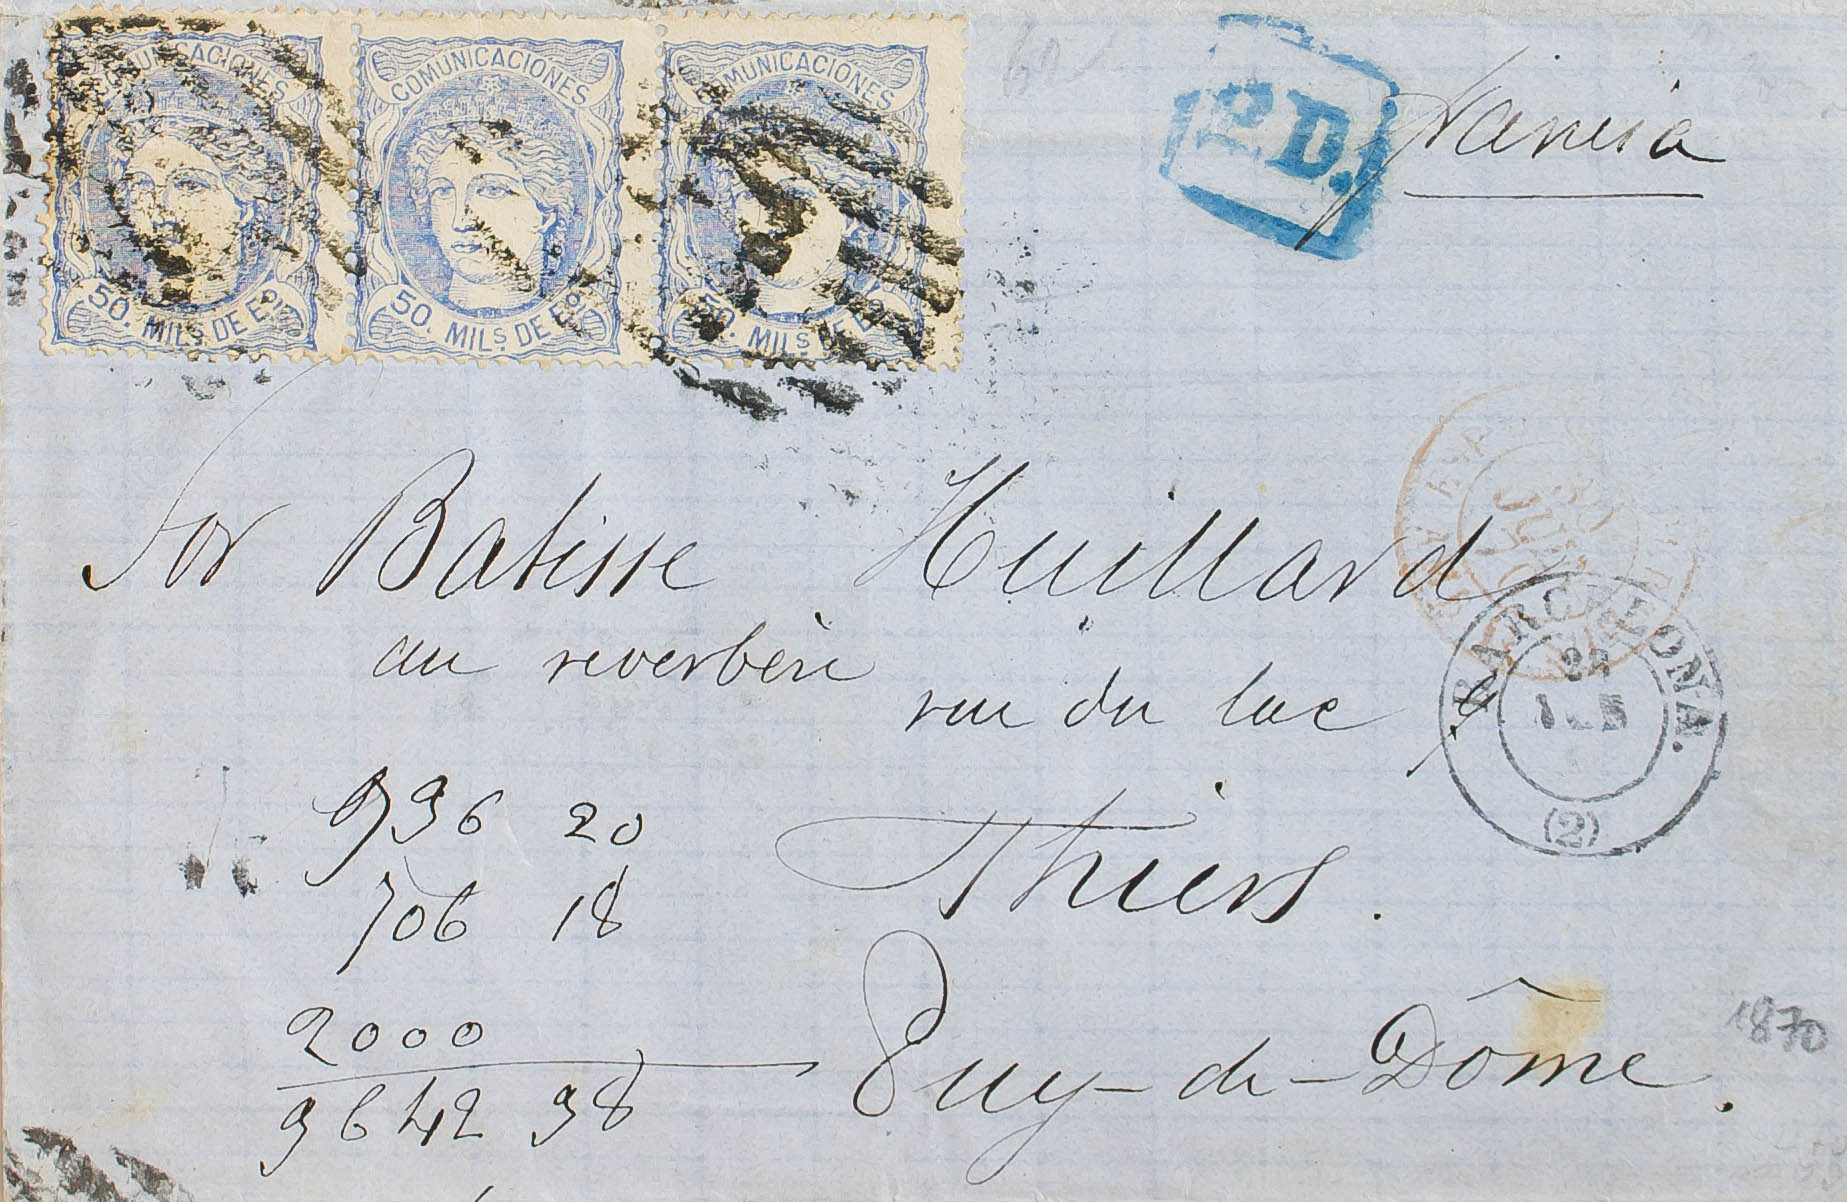 COMUNICACIONES COMUNICACIONES COMUNICACIONES
50. MILS DE Eo 50. MILS DE Eo 50. MILS DE Eo
P.D.
Francia
Sor Batisse Huillard
au reverbère
rue du lac 9
BARCELONA.
(2)
936 20
706 18
2000
3642 38
Thiers.
Puy-de-Dôme.
1870